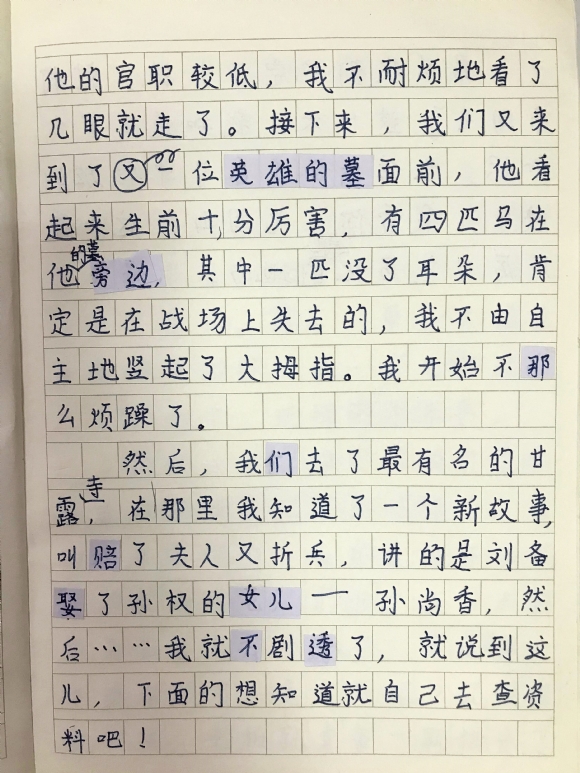 他的官职较低，我不耐烦地看了
几眼就走了。接下来，我们又来
到了又一位英雄的墓面前，他看
起来生前十分厉害，有四匹马在
他的墓旁边，其中一匹没了耳朵，肯
定是在战场上失去的，我不由自
主地竖起了大拇指。我开始不那
么烦躁了。
然后，我们去了最有名的甘
露寺，在那里我知道了一个新故事，
叫赔了夫人又折兵，讲的是刘备
娶了孙权的女儿——孙尚香，然
后……我就不剧透了，就说到这
儿，下面的想知道就自己去查资
料吧！